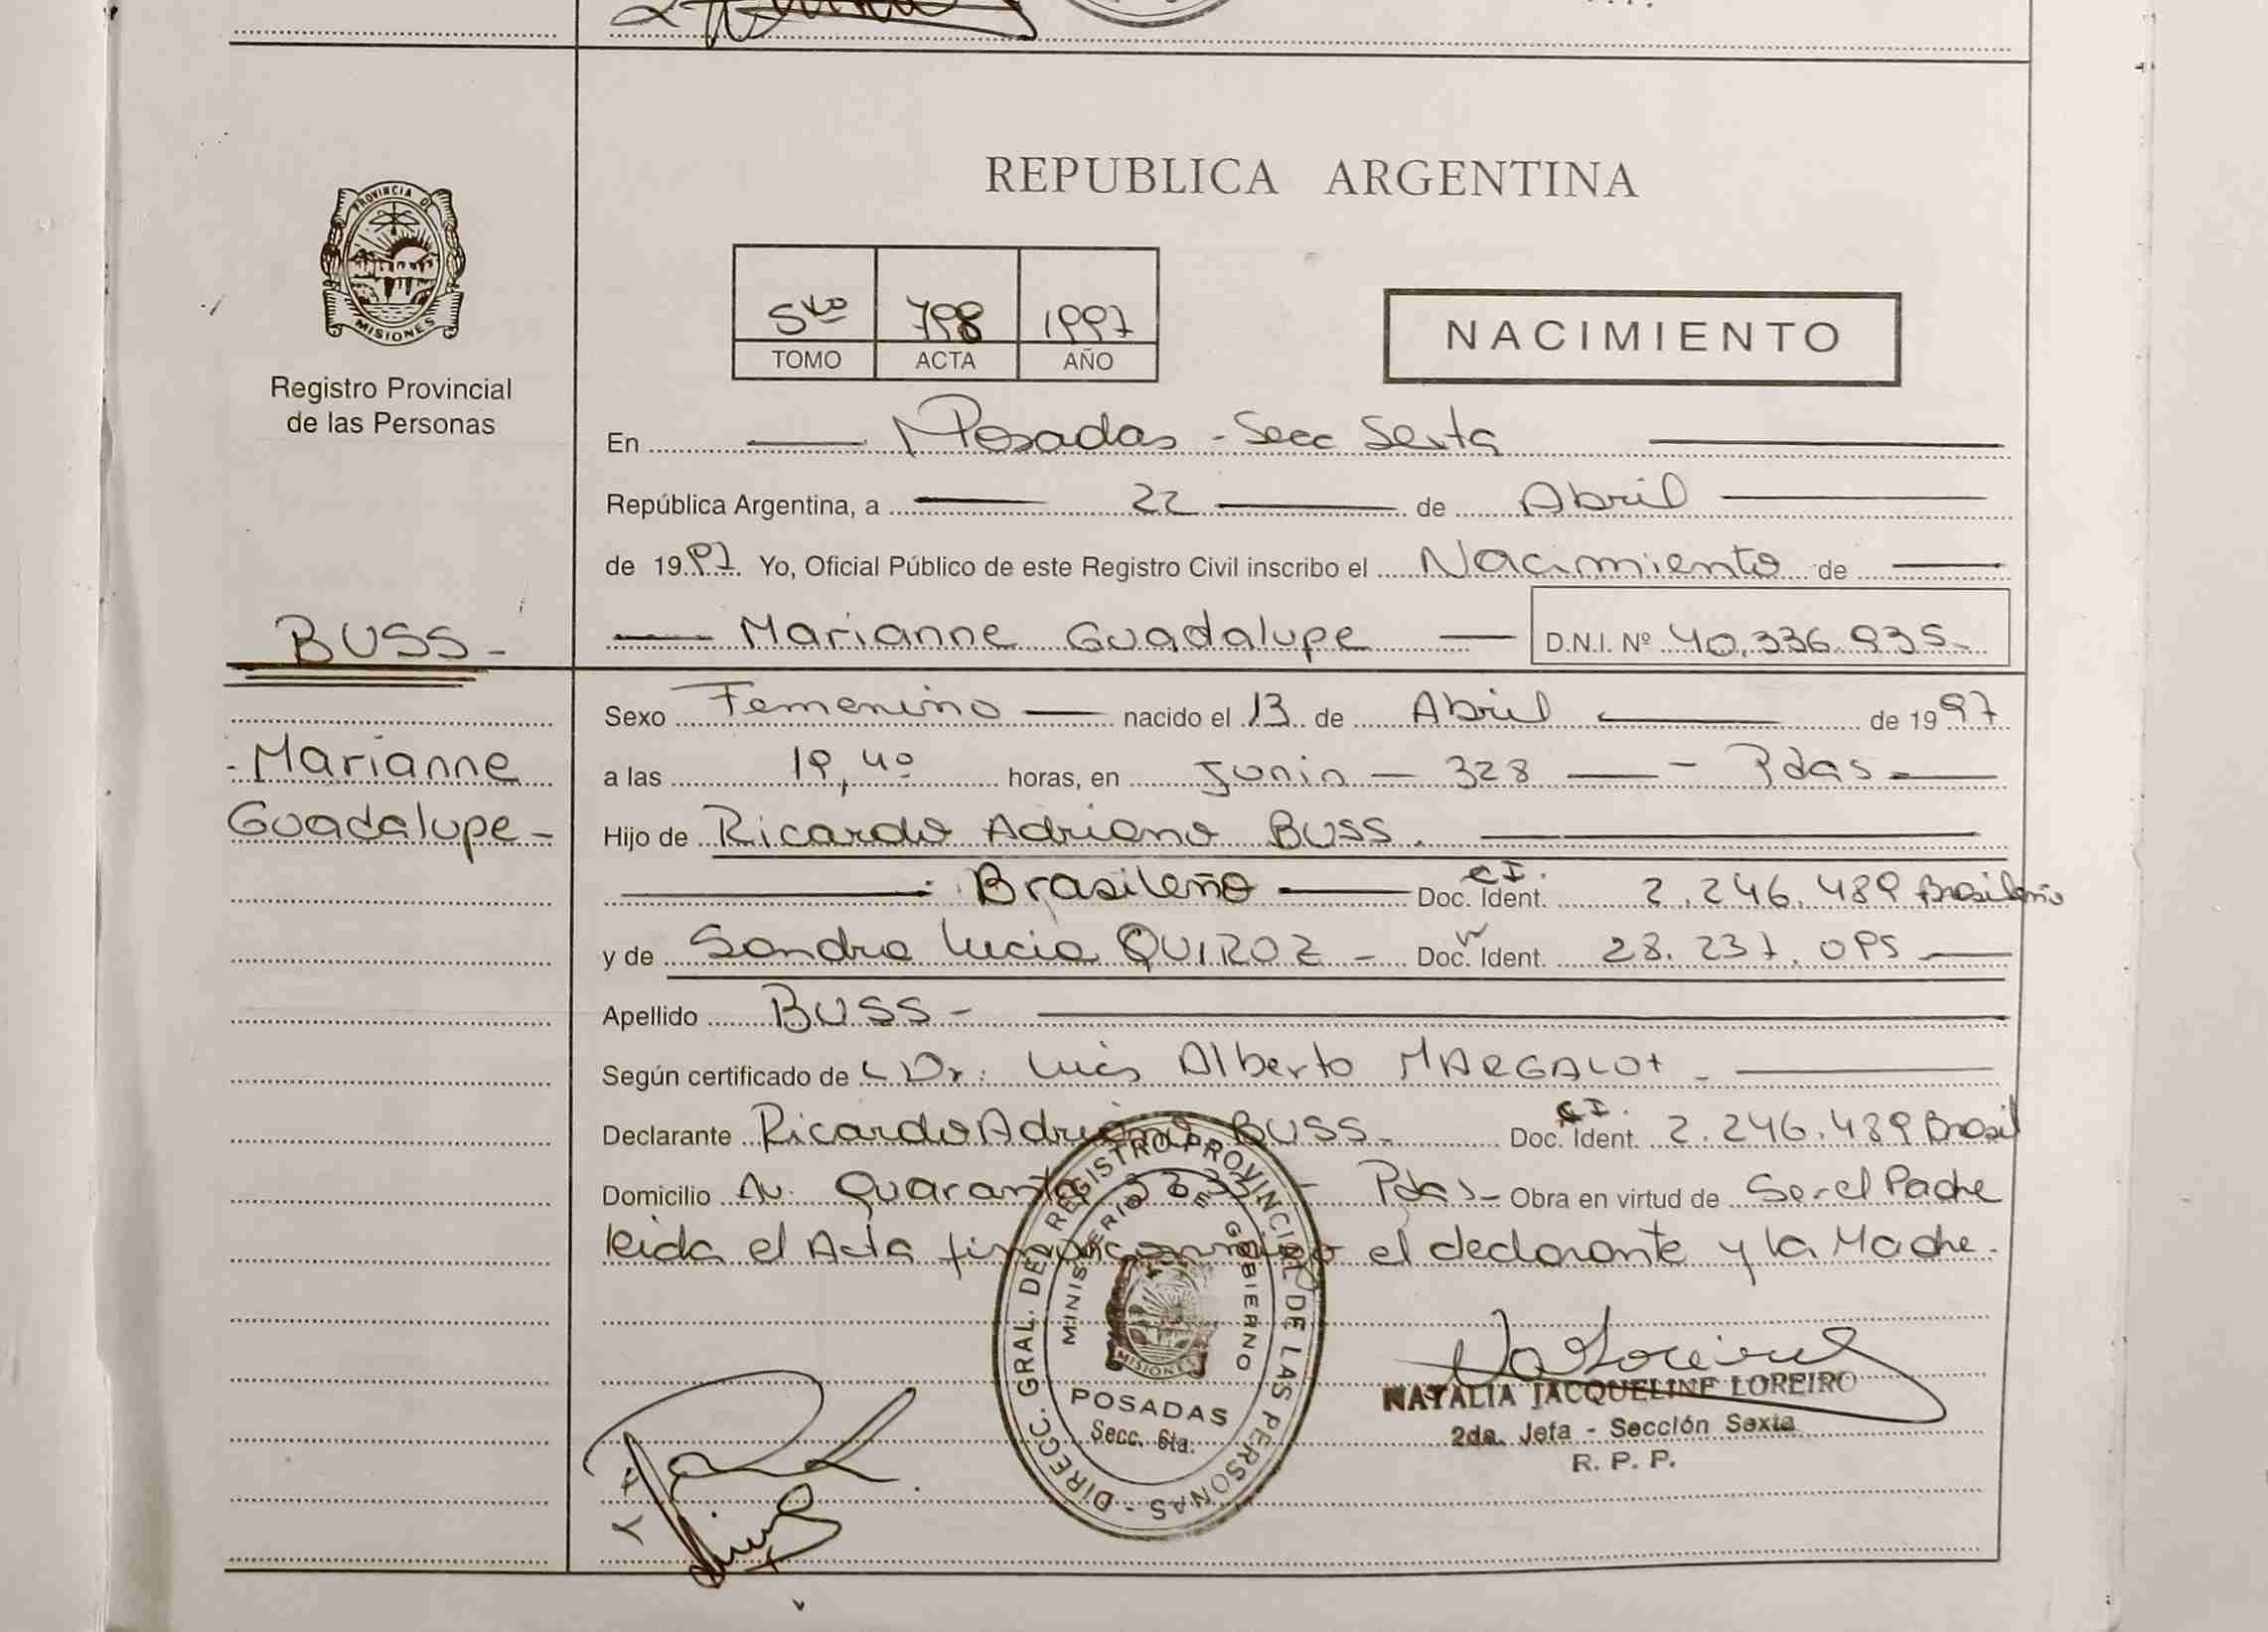 REPUBLICA ARGENTINA
PROVINCIA DE
MISIONES
Registro Provincial
de las Personas
5to 798 1997
TOMO ACTA AÑO
NACIMIENTO
En Posadas - Secc Sexta
República Argentina, a 22 de Abril
de 1997 Yo, Oficial Público de este Registro Civil inscribo el Nacimiento de
BUSS -
Marianne Guadalupe D.N.I. Nº 40.336.935-
Sexo Femenino nacido el 13 de Abril de 1997
- Marianne
Guadalupe -
a las 19,40 horas, en Junin - 328 - Pdas -
Hijo de Ricardo Adriano BUSS.
Brasileño C.I. Doc. Ident. 2.246.489 Brasileño
y de Sandra Lucia QUIROZ - Doc. Ident. 28.237.095
Apellido BUSS -
Según certificado de Dr. Luis Alberto MARGALOT -
Declarante Ricardo Adriano BUSS - C.I. Doc. Ident. 2.246.489 Brasil
Domicilio Av. Quaranta - Pdas - Obra en virtud de Ser el Padre
leida el Acta conmigo el declarante y la Madre.
DIRECC. GRAL. DEL REGISTRO PROVINCIAL DE LAS PERSONAS -
MINISTERIO DE GOBIERNO
MISIONES
POSADAS
Secc. 6ta.
NATALIA JACQUELINE LOREIRO
2da. Jefa - Sección Sexta
R. P. P.